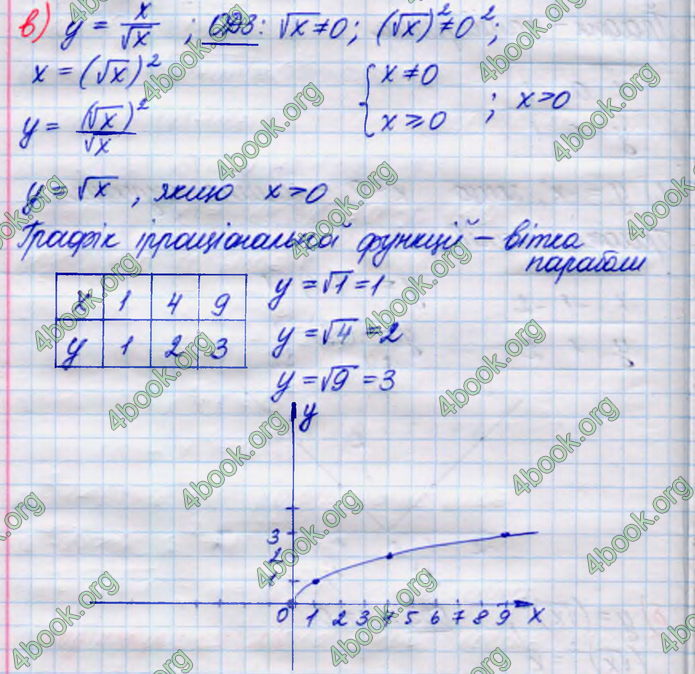 в) y = x/√x ; ОДЗ: √x ≠ 0; (√x)² ≠ 0²;
x = (√x)² { x ≠ 0
y = (√x)²/√x { x ⩾ 0 ; x > 0
y = √x, якщо x > 0
Графік ірраціональної функції – вітка
параболи
x 1 4 9
y 1 2 3
y = √1 = 1
y = √4 = 2
y = √9 = 3
y
3
2
1
0 1 2 3 4 5 6 7 8 9 x
4book.org